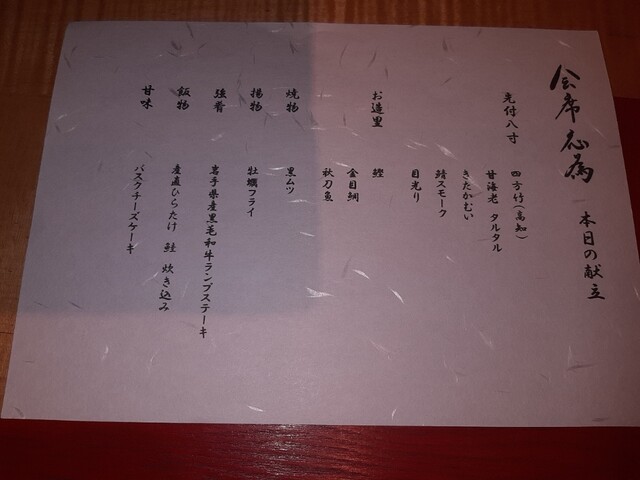 会席志為
本日の献立
先付八寸
四方竹(高知)
甘海老 タルタル
きたかむい
鯖スモーク
目光り
お造里
鰹
金目鯛
秋刀魚
焼物
黒ムツ
揚物
牡蠣フライ
強肴
岩手県産黒毛和牛ランプステーキ
飯物
産直ひらたけ 鮭 炊き込み
甘味
バスクチーズケーキ